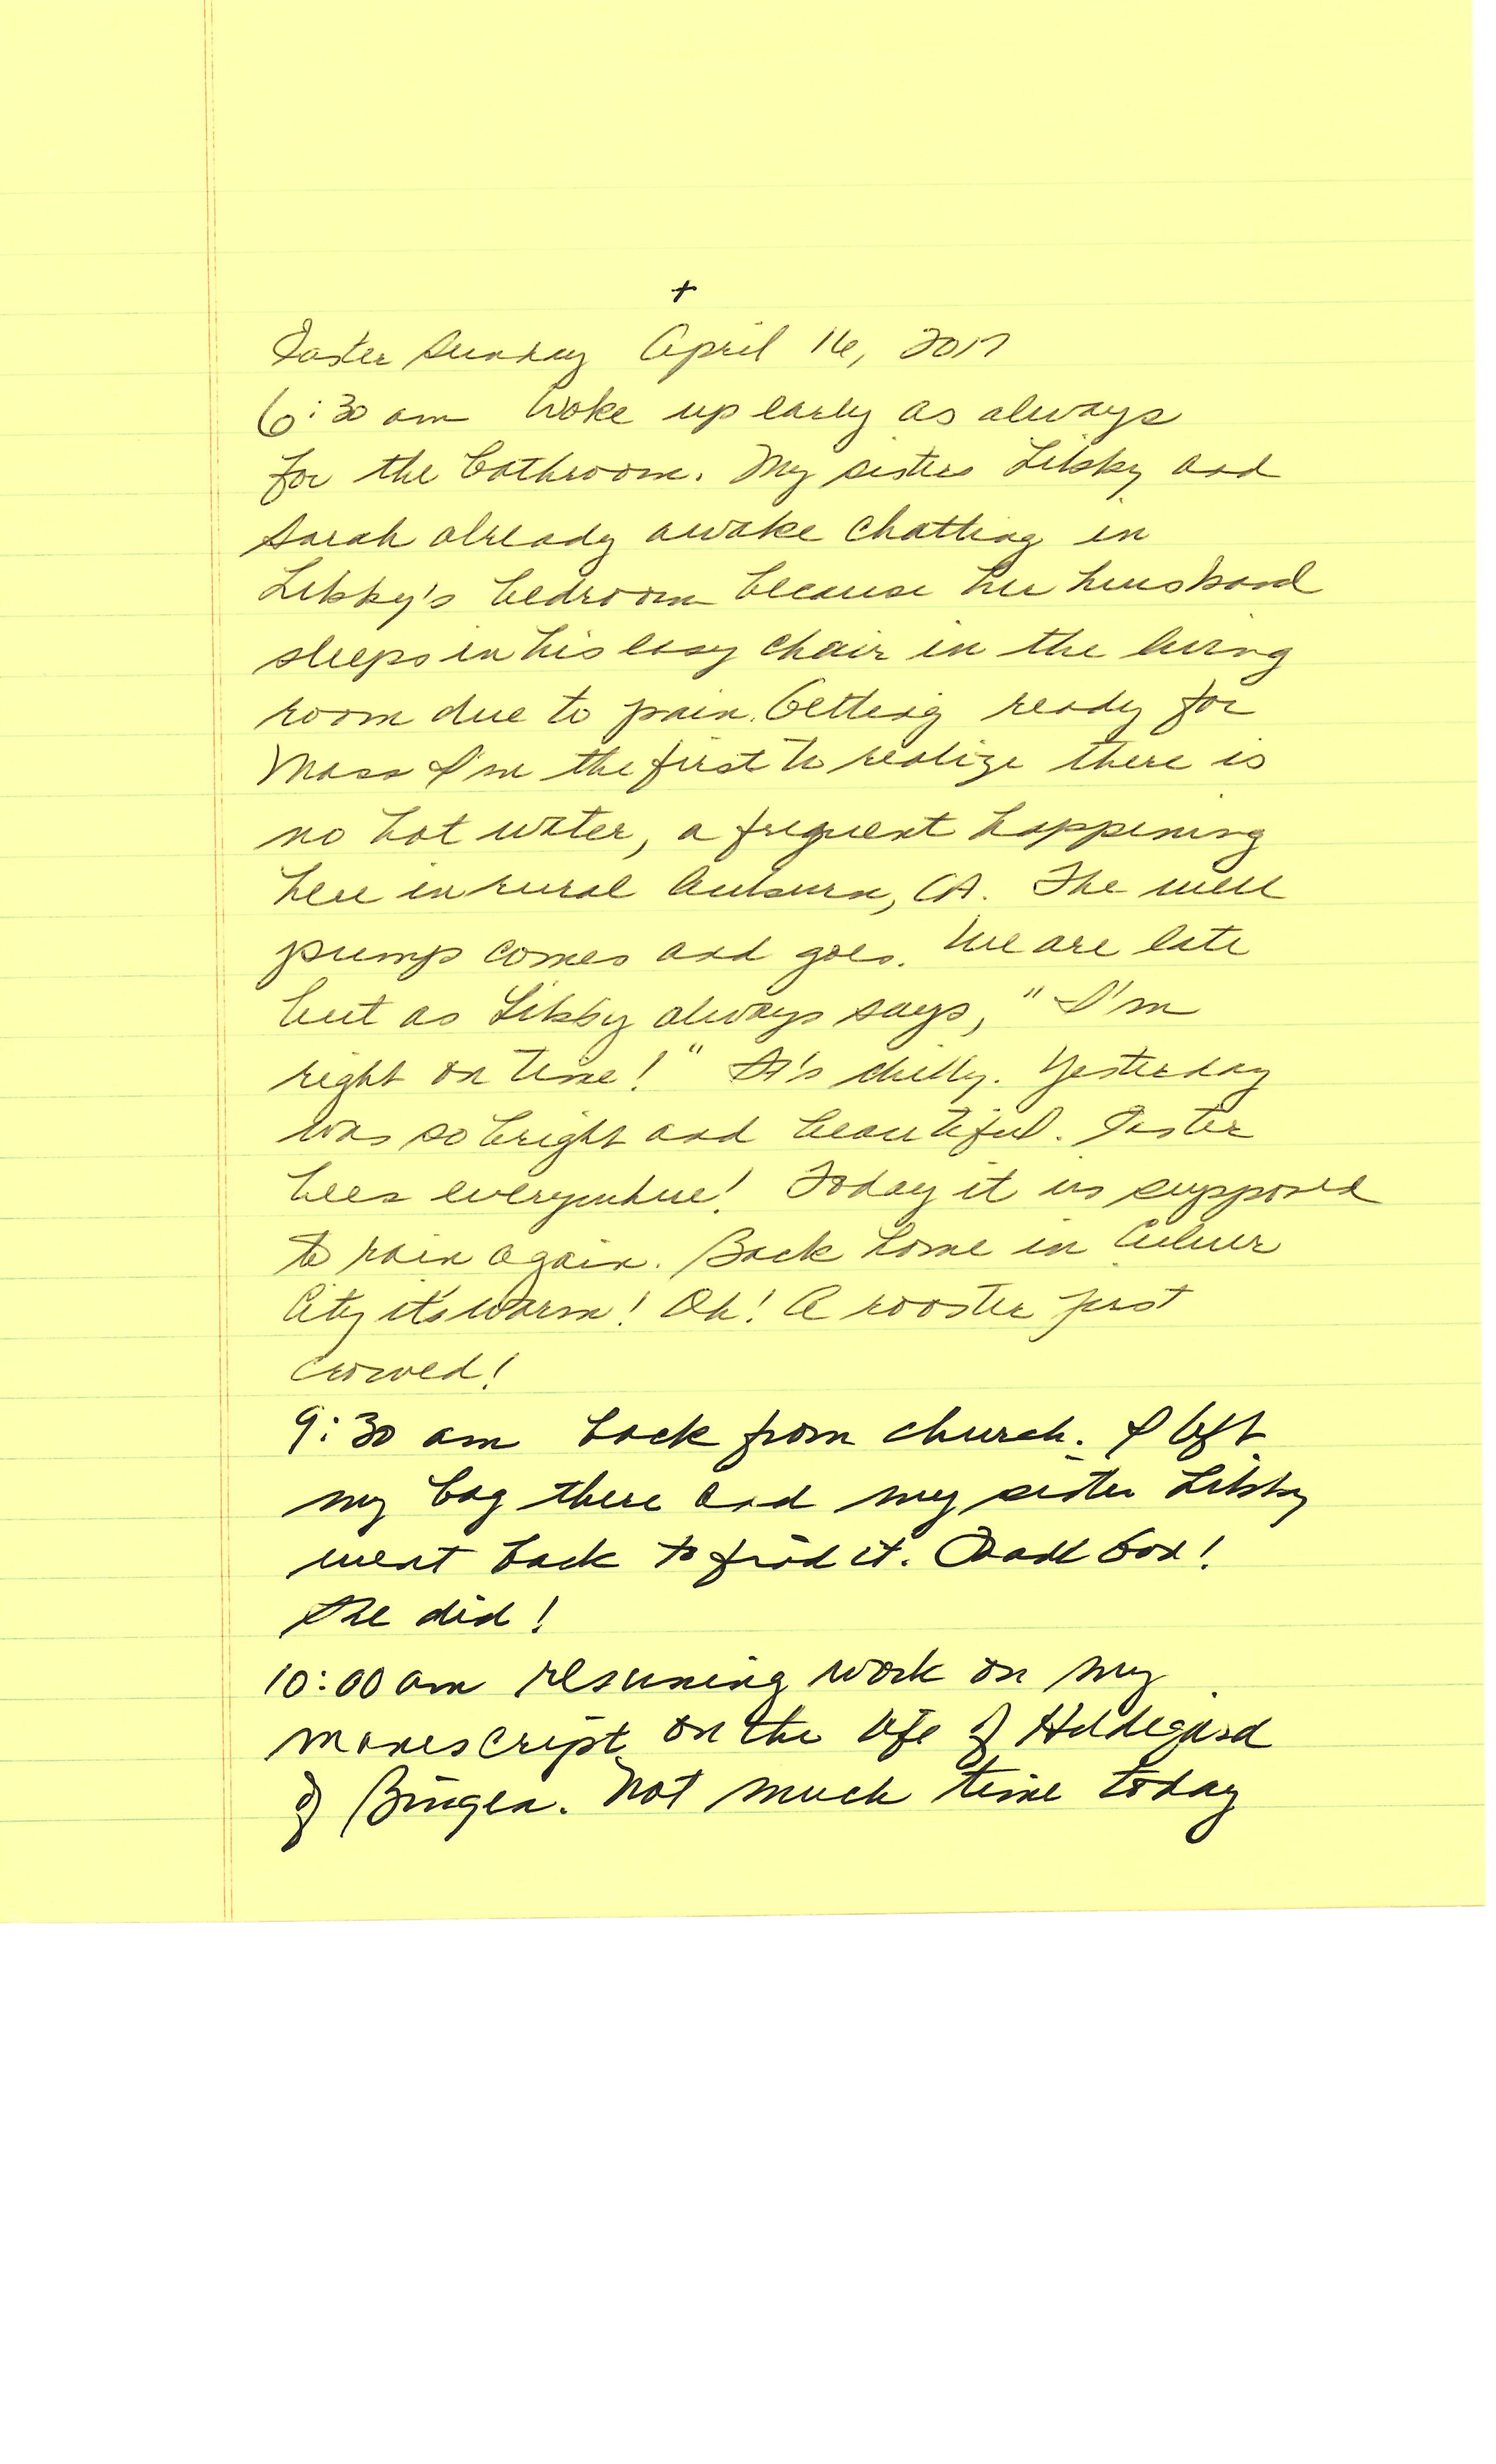 +
Easter Sunday April 16, 2017
6:30 am Woke up early as always
for the bathroom. My sisters Libby and
Sarah already awake chatting in
Libby's bedroom because her husband
sleeps in his easy chair in the living
room due to pain. Getting ready for
Mass I'm the first to realize there is
no hot water, a frequent happening
here in rural Auburn, CA. The well
pump comes and goes. We are late
but as Libby always says, "I'm
right on time!" It's chilly. Yesterday
was so bright and beautiful. Easter
bees everywhere! Today it is supposed
to rain again. Back home in Culver
City it's warm! Oh! A rooster just
crowed!
9:30 am back from church. I left
my bag there and my sister Libby
went back to find it. God!
She did!
10:00 am resuming work on my
manuscript on the life of Hildegard
of Bingen. Not much time today